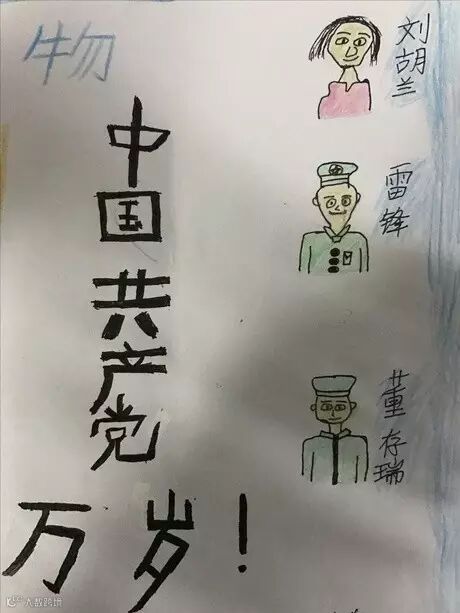 物
中国共产党
万岁！
刘胡兰
雷锋
董存瑞
大数跨境